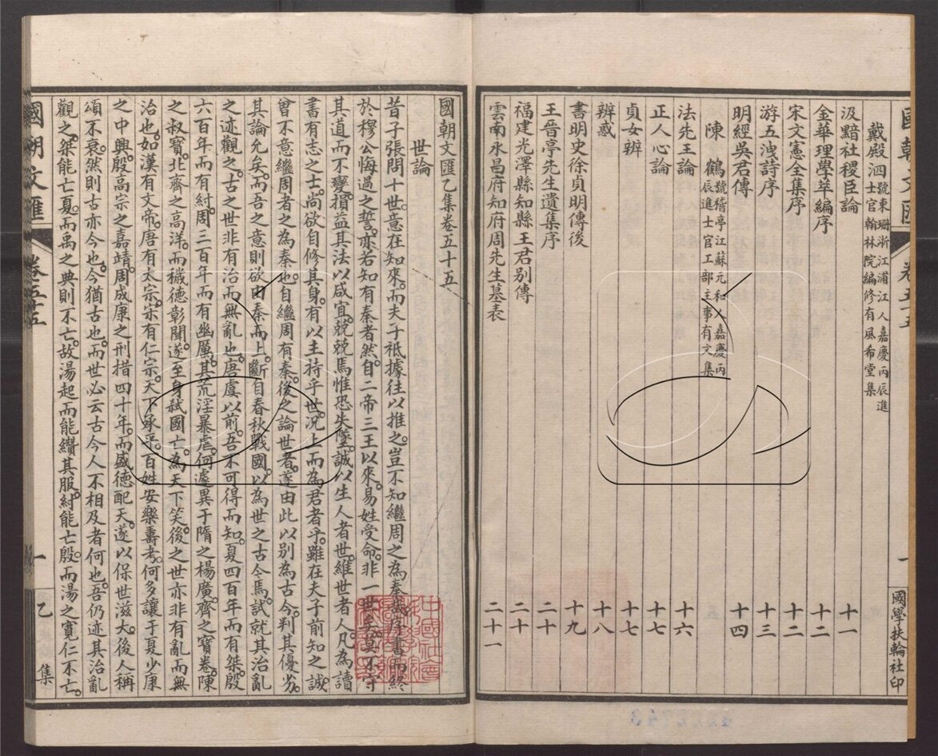 戴殿泗號東珊浙江浦江人嘉慶丙辰進士官翰林院編修有風希堂集
汲黯社稷臣論 十一
金華理學萃編序 十二
宋文憲全集序 十二
游五洩詩序 十三
明經吳君傳 十四
陳 鶴號稽亭江蘇元和人嘉慶丙辰進士官工部主事有文集
法先王論 十六
正人心論 十七
貞女辨 十七
辨惑 十八
書明史徐貞明傳後 十九
王晉亭先生遺集序 二十
福建光澤縣知縣王君別傳 二十
雲南永昌府知府周先生墓表 二十一
國學扶輪社印
國朝文匯乙集卷五十五
世論
昔子張問十世意在知來而夫子祗據往以推之豈不知繼周之為秦哉序書而終
於穆公悔過之誓亦若知有秦者然自二帝三王以來易姓受命非一世矣莫不守
其道而不變損益其法以咸宜兢兢焉惟恐失墜誠以生人者世維世者人凡為讀
書有志之士尚欲自修其身有以主持乎世況上而為君者乎雖在夫子前知之誠
曾不意繼周者之為秦也自繼周有秦後之論世者遂由此以別為古今判其優劣
其論允矣而吾之意則欲由秦而上斷自春秋戰國以為世之古今焉試就其治亂
之迹觀之古之世非有治而無亂也唐虞以前吾不可得而知夏四百年而有桀殷
六百年而有紂周三百年而有幽厲其荒淫暴虐何遽異于隋之楊廣齊之寶卷陳
之叔寶北齊之高洋而穢德彰聞遂至身弒國亡為天下笑後之世亦非有亂而無
治也如漢有文帝唐有太宗宋有仁宗天下承平百姓安樂壽考何多讓于夏少康
之中興殷高宗之嘉靖周成康之刑措四十年而盛德配天遂以保世滋大後人稱
頌不衰然則古亦今也今猶古也而世必云古今人不相及者何也吾仍迹其治亂
觀之桀能亡夏而禹之典則不亡故湯起而能纘其服紂能亡殷而湯之寬仁不亡
國朝文匯 卷五十五 一 乙集